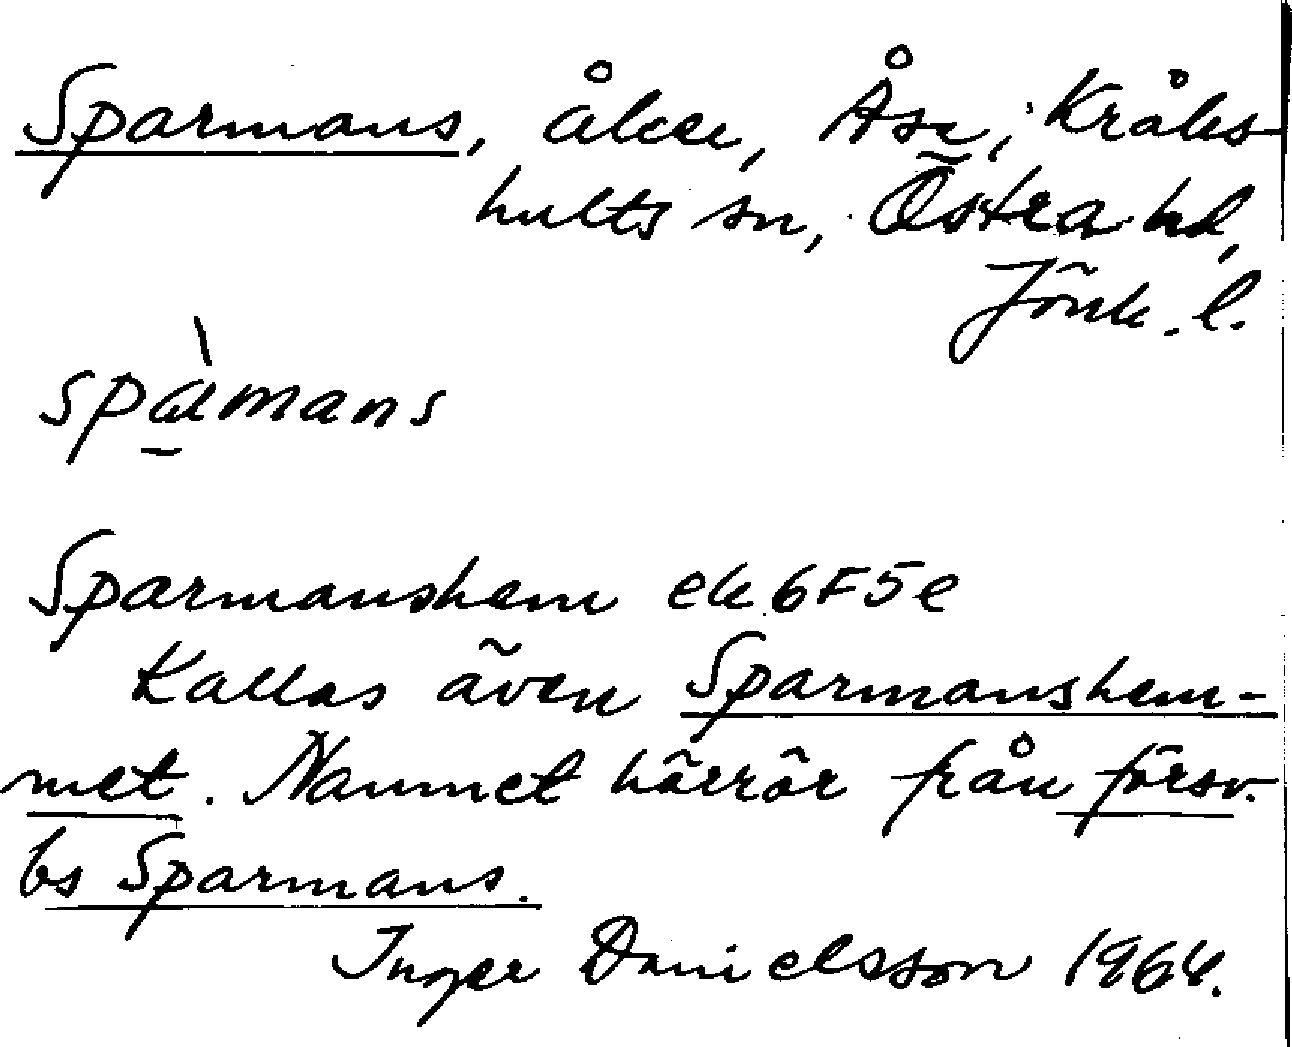 Sparmans, åker, Åsa, Kråks-
hults sn, Östra hd,
Jönk. l.
spàmans
Sparmanshem ek 6F5e
Kallas även Sparmanshem-
met. Namnet härrör från försv.
bs Sparmans.
Inger Danielsson 1964.